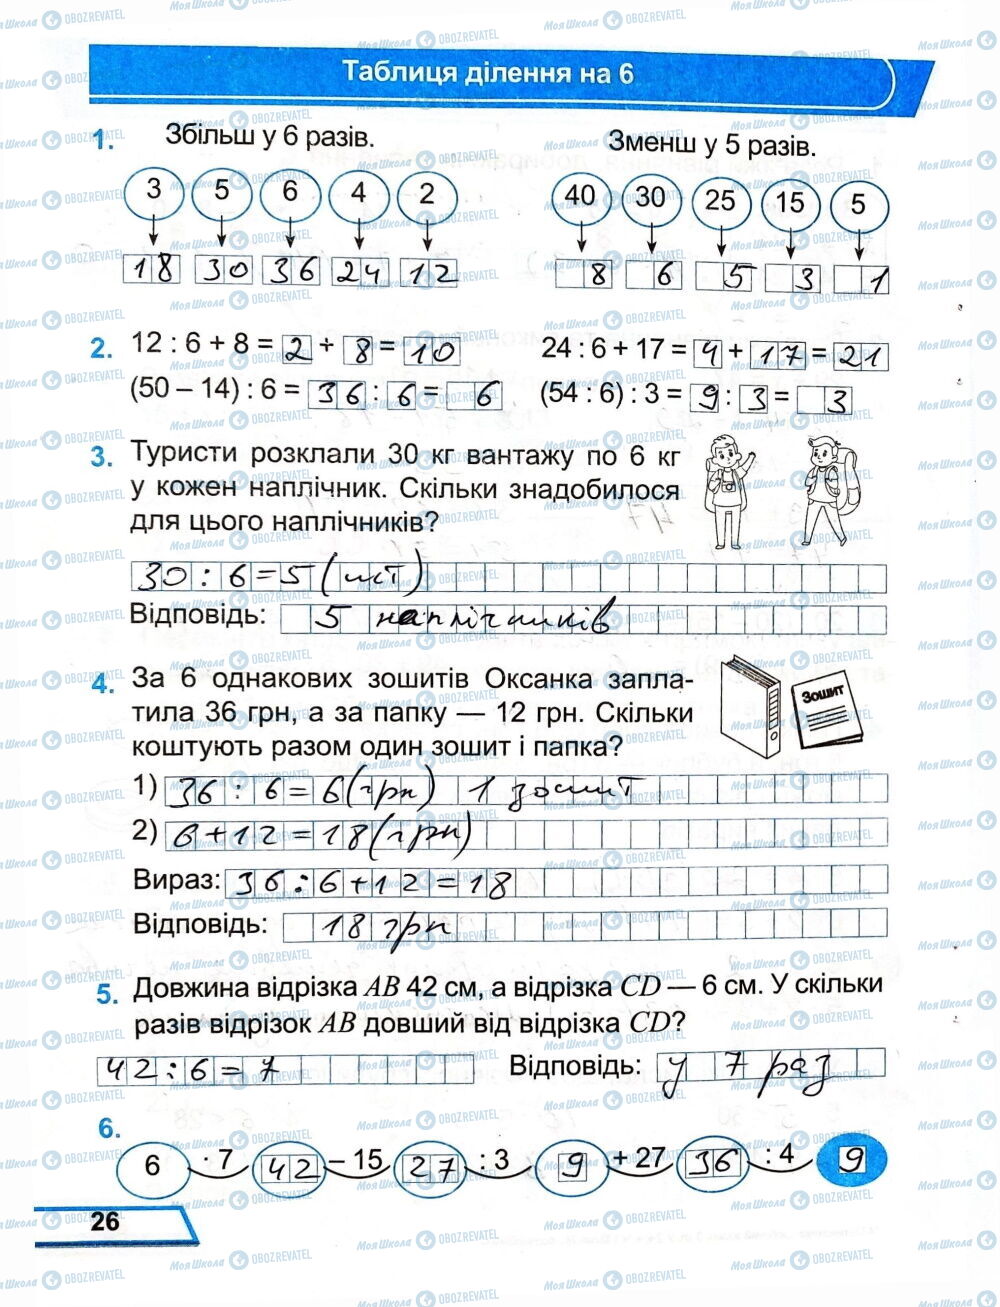 Таблиця ділення на 6
1. Збільш у 6 разів. Зменш у 5 разів.
3 5 6 4 2 40 30 25 15 5
18 30 36 24 12 8 6 5 3 1
2. 12 : 6 + 8 = 2 + 8 = 10 24 : 6 + 17 = 4 + 17 = 21
(50 – 14) : 6 = 36 : 6 = 6 (54 : 6) : 3 = 9 : 3 = 3
3. Туристи розклали 30 кг вантажу по 6 кг
у кожен наплічник. Скільки знадобилося
для цього наплічників?
30 : 6 = 5 (шт)
Відповідь: 5 наплічників
4. За 6 однакових зошитів Оксанка запла-
тила 36 грн, а за папку — 12 грн. Скільки
коштують разом один зошит і папка?
Зошит
1) 36 : 6 = 6 (грн) 1 зошит
2) 6 + 12 = 18 (грн)
Вираз: 36 : 6 + 12 = 18
Відповідь: 18 грн
5. Довжина відрізка AB 42 см, а відрізка CD — 6 см. У скільки
разів відрізок AB довший від відрізка CD?
42 : 6 = 7 Відповідь: у 7 раз
6.
6 · 7 42 – 15 27 : 3 9 + 27 36 : 4 9
26
МояШкола OBOZREVATEL